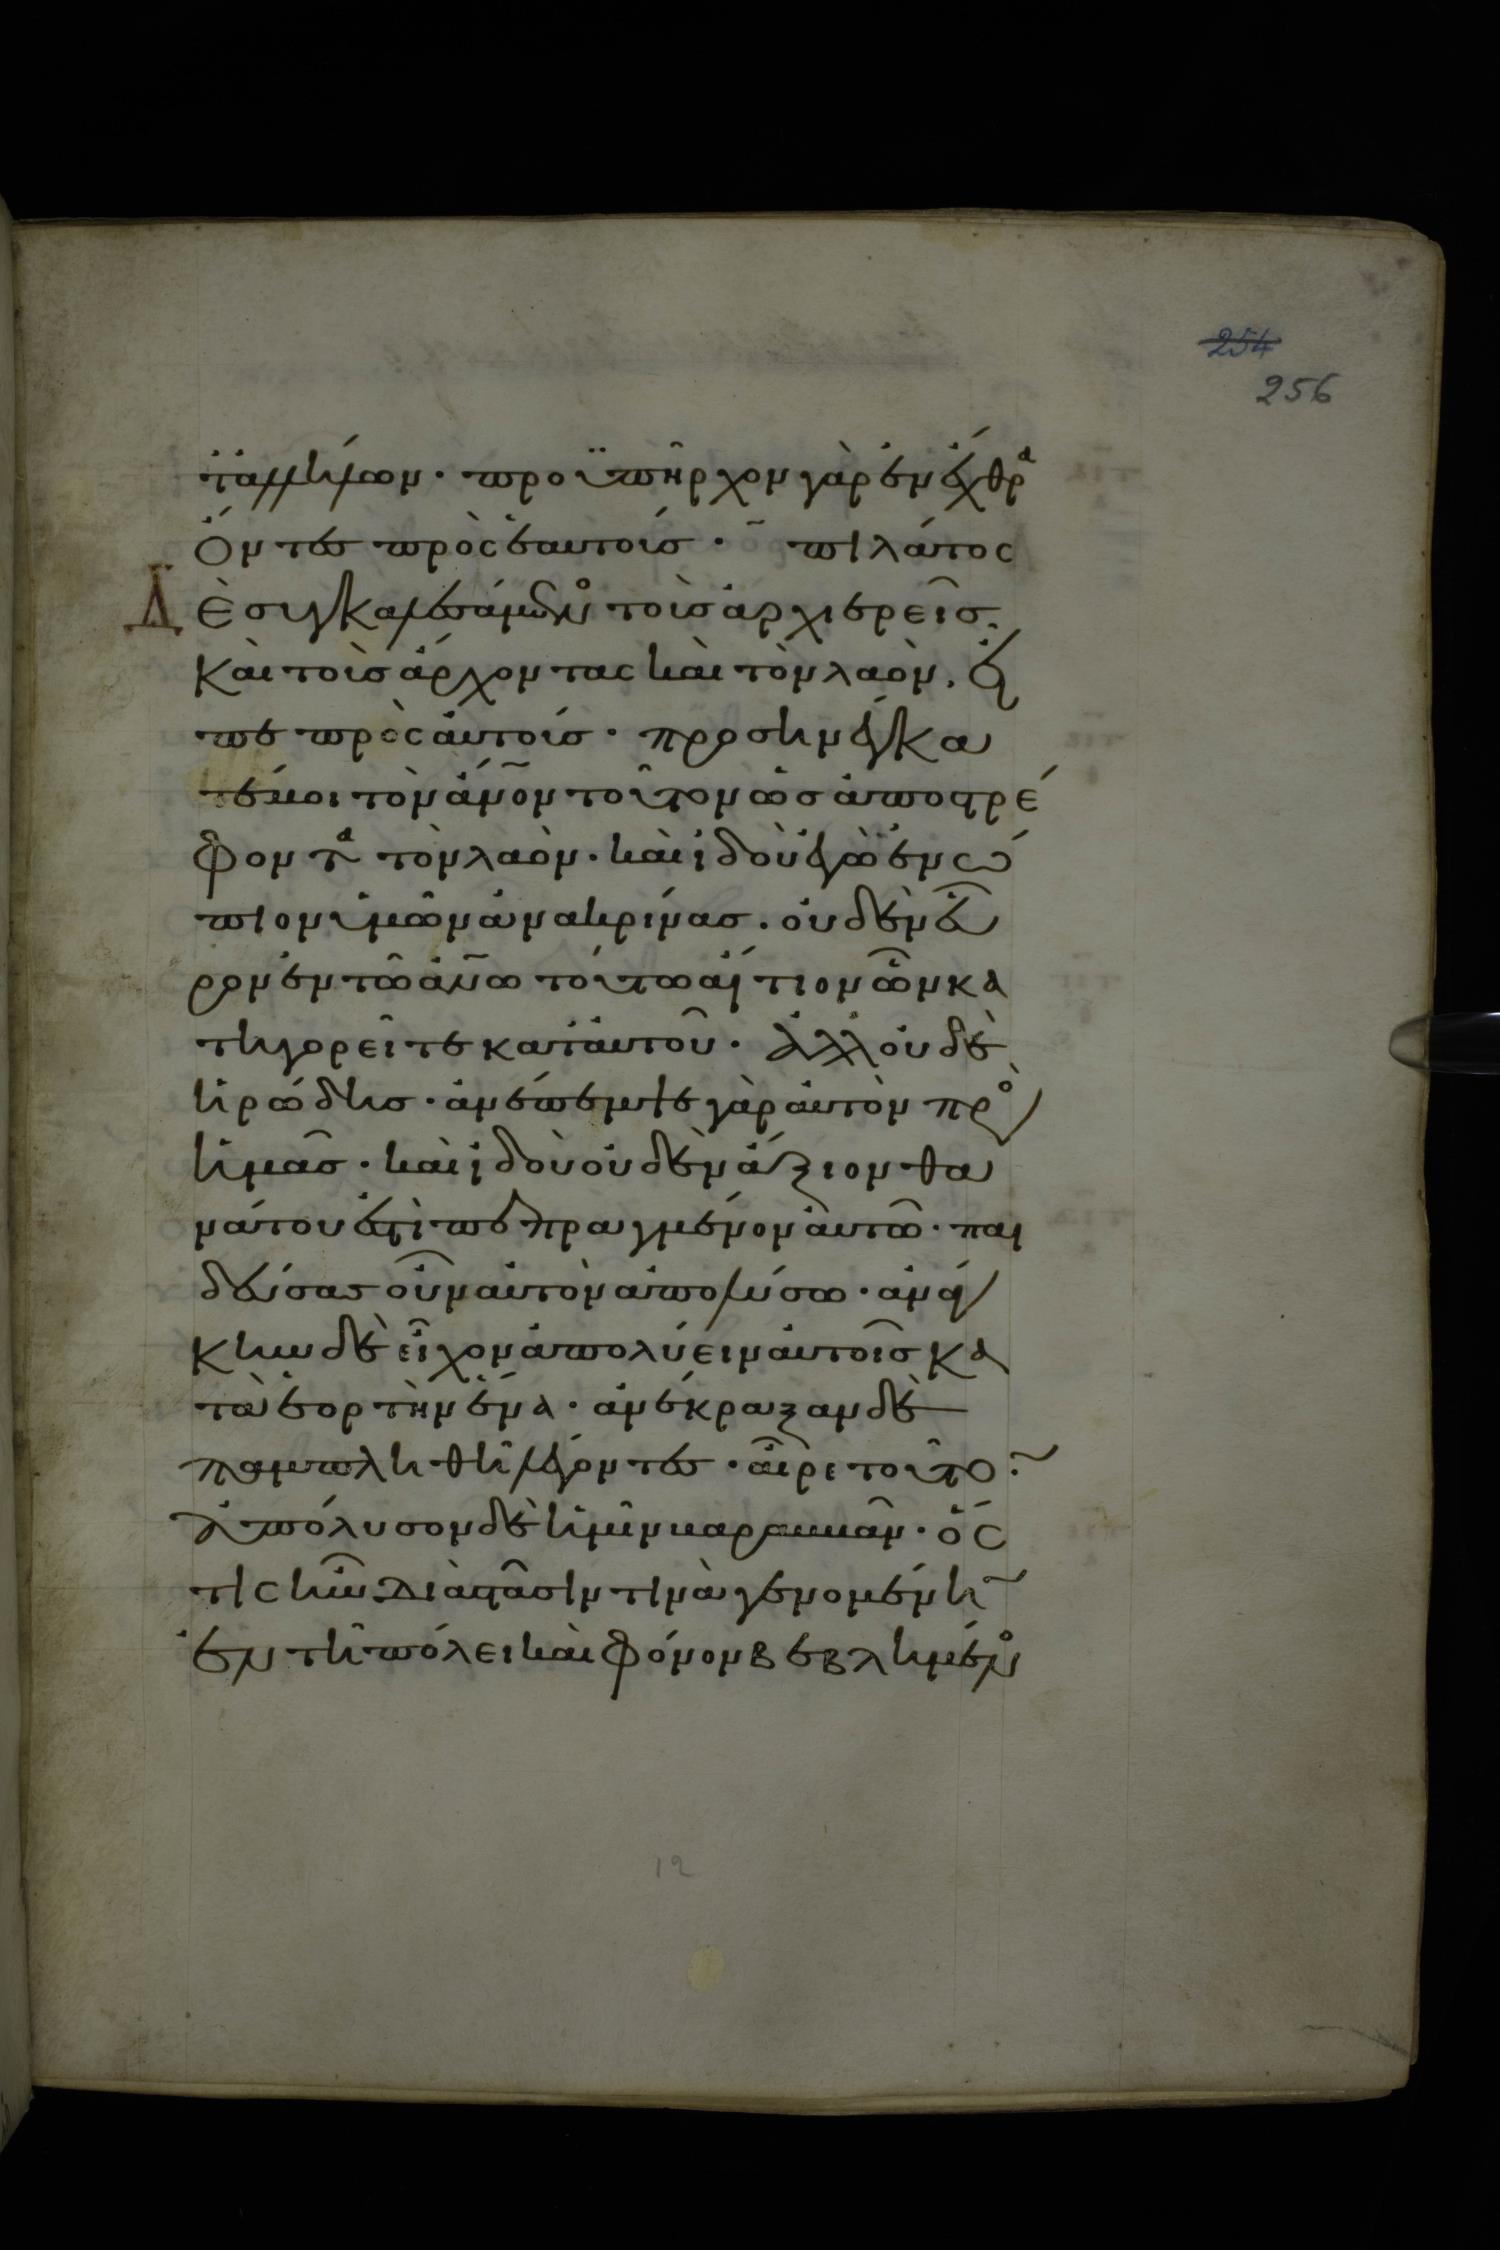 254
256
τἀλλήλων · προϋπῆρχον γὰρ ἐν ἔχθρα
ὄντες πρὸς ἑαυτούς · πιλάτος
Δ ὲ συγκαλεσάμενος τοὺς ἀρχιερεῖς.
καὶ τοὺς ἄρχοντας καὶ τὸν λαὸν. εἶ
πε πρὸς αὐτούς · προσηνέγκα
τέ μοι τὸν ἄν̅ον τοῦτον ὡς ἀποστρέ
φοντα τὸν λαὸν · καὶ ἰδοὺ ἐγὼ ἐνώ
πιον ὑμῶν ἀνακρίνας . οὐδὲν εὗ
ρον ἐν τῶ ἀν̅ω τούτω αἴτιον ὧν κα
τηγορεῖτε κατ' αὐτοῦ · ἀλλ' οὐδὲ
ἡρώδης · ἀνέπεμψε γὰρ αὐτὸν πρὸς
ἡμᾶς · καὶ ἰδοὺ οὐδὲν ἄξιον θα
νάτου ἐστὶ πεπραγμένον αὐτῶ · παι
δεύσας οὖν αὐτὸν ἀπολύσω · ἀνάγ
κην δὲ εἶχον ἀπολύειν αὐτοῖς κα
τὰ ἑορτὴν ἕνα · ἀνέκραξαν δὲ
παμπληθῆ λέγοντες · αἶρε τοῦτον ·
ἀπόλυσον δὲ ἡμῖν βαραββᾶν · ὅς
τις ἦν διὰ στάσιν τινὰ γενομένην
ἐν τῆ πόλει καὶ φόνον βεβλημένος
12